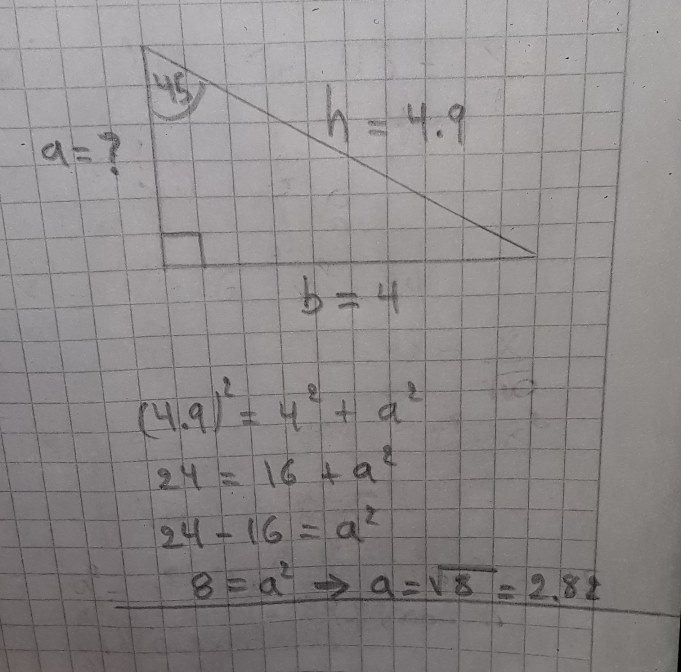 45
h = 4.9
a = ?
b = 4
(4.9)² = 4² + a²
24 = 16 + a²
24 - 16 = a²
8 = a² → a = √8 = 2.82